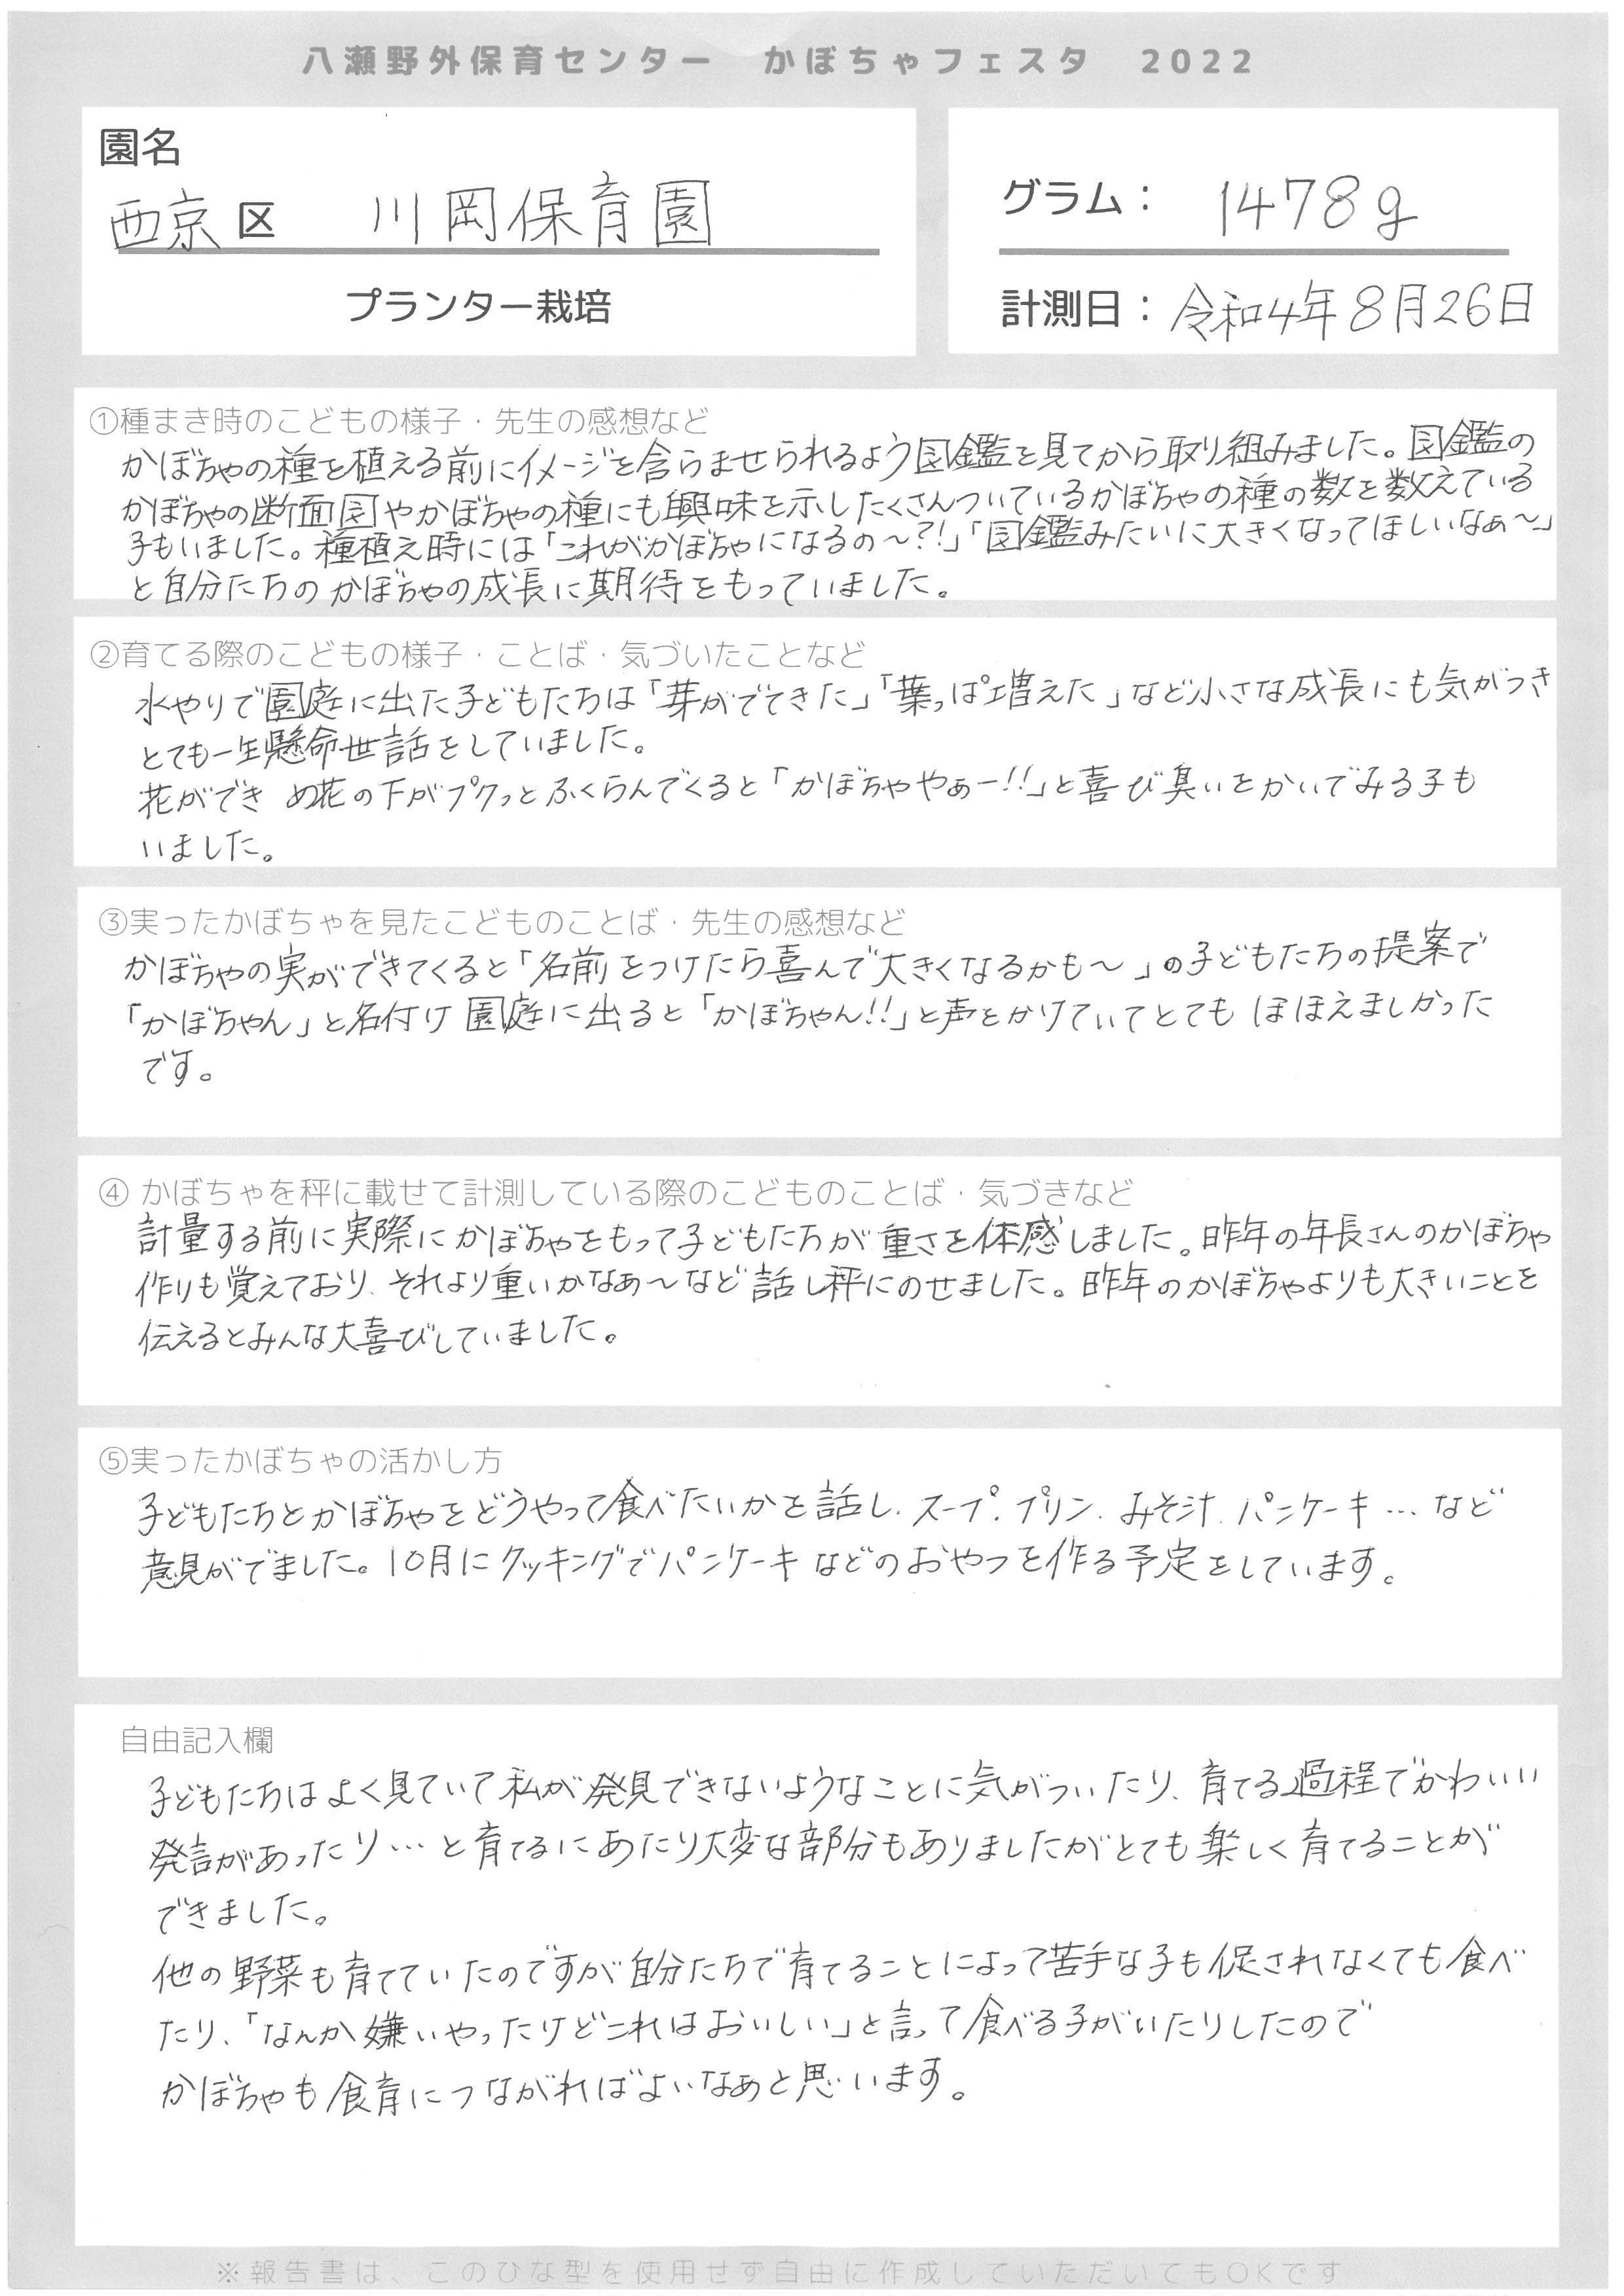 八瀬野外保育センター　かぼちゃフェスタ　2022
園名
西京区　川岡保育園
プランター栽培
グラム：　1478g
計測日：令和4年8月26日
①種まき時のこどもの様子・先生の感想など
かぼちゃの種を植える前にイメージを含らませられるよう図鑑を見てから取り組みました。図鑑の
かぼちゃの断面図やかぼちゃの種にも興味を示したくさんついているかぼちゃの種の数を数えている
子もいました。種植え時には「これがかぼちゃになるの～?!」「図鑑みたいに大きくなってほしいなぁ～」
と自分たちのかぼちゃの成長に期待をもっていました。
②育てる際のこどもの様子・ことば・気づいたことなど
水やりで園庭に出た子どもたちは「芽がでてきた」「葉っぱ増えた」など小さな成長にも気がつき
とても一生懸命世話をしていました。
花ができ め花の下がプクっとふくらんでくると「かぼちゃやぁー!!」と喜び臭いをかいでみる子も
いました。
③実ったかぼちゃを見たこどものことば・先生の感想など
かぼちゃの実ができてくると「名前をつけたら喜んで大きくなるかも～」の子どもたちの提案で
「かぼちゃん」と名付け園庭に出ると「かぼちゃん!!」と声をかけていてとてもほほえましかった
です。
④ かぼちゃを秤に載せて計測している際のこどものことば・気づきなど
計量する前に実際にかぼちゃをもって子どもたちが重さを体感しました。昨年の年長さんのかぼちゃ
作りも覚えており、それより重いかなぁ～など話し秤にのせました。昨年のかぼちゃよりも大きいことを
伝えるとみんな大喜びしていました。
⑤実ったかぼちゃの活かし方
子どもたちとかぼちゃをどうやって食べたいかを話し、スープ、プリン、みそ汁、パンケーキ…など
意見がでました。10月にクッキングでパンケーキなどのおやつを作る予定をしています。
自由記入欄
子どもたちはよく見ていて私が発見できないようなことに気がついたり、育てる過程でかわいい
発言があったり…と育てるにあたり大変な部分もありましたがとても楽しく育てることが
できました。
他の野菜も育てていたのですが自分たちで育てることによって苦手な子も促されなくても食べ
たり、「なんか嫌いやったけどこれはおいしい」と言って食べる子がいたりしたので
かぼちゃも食育につながればよいなぁと思います。
※報告書は、このひな型を使用せず自由に作成していただいてもOKです